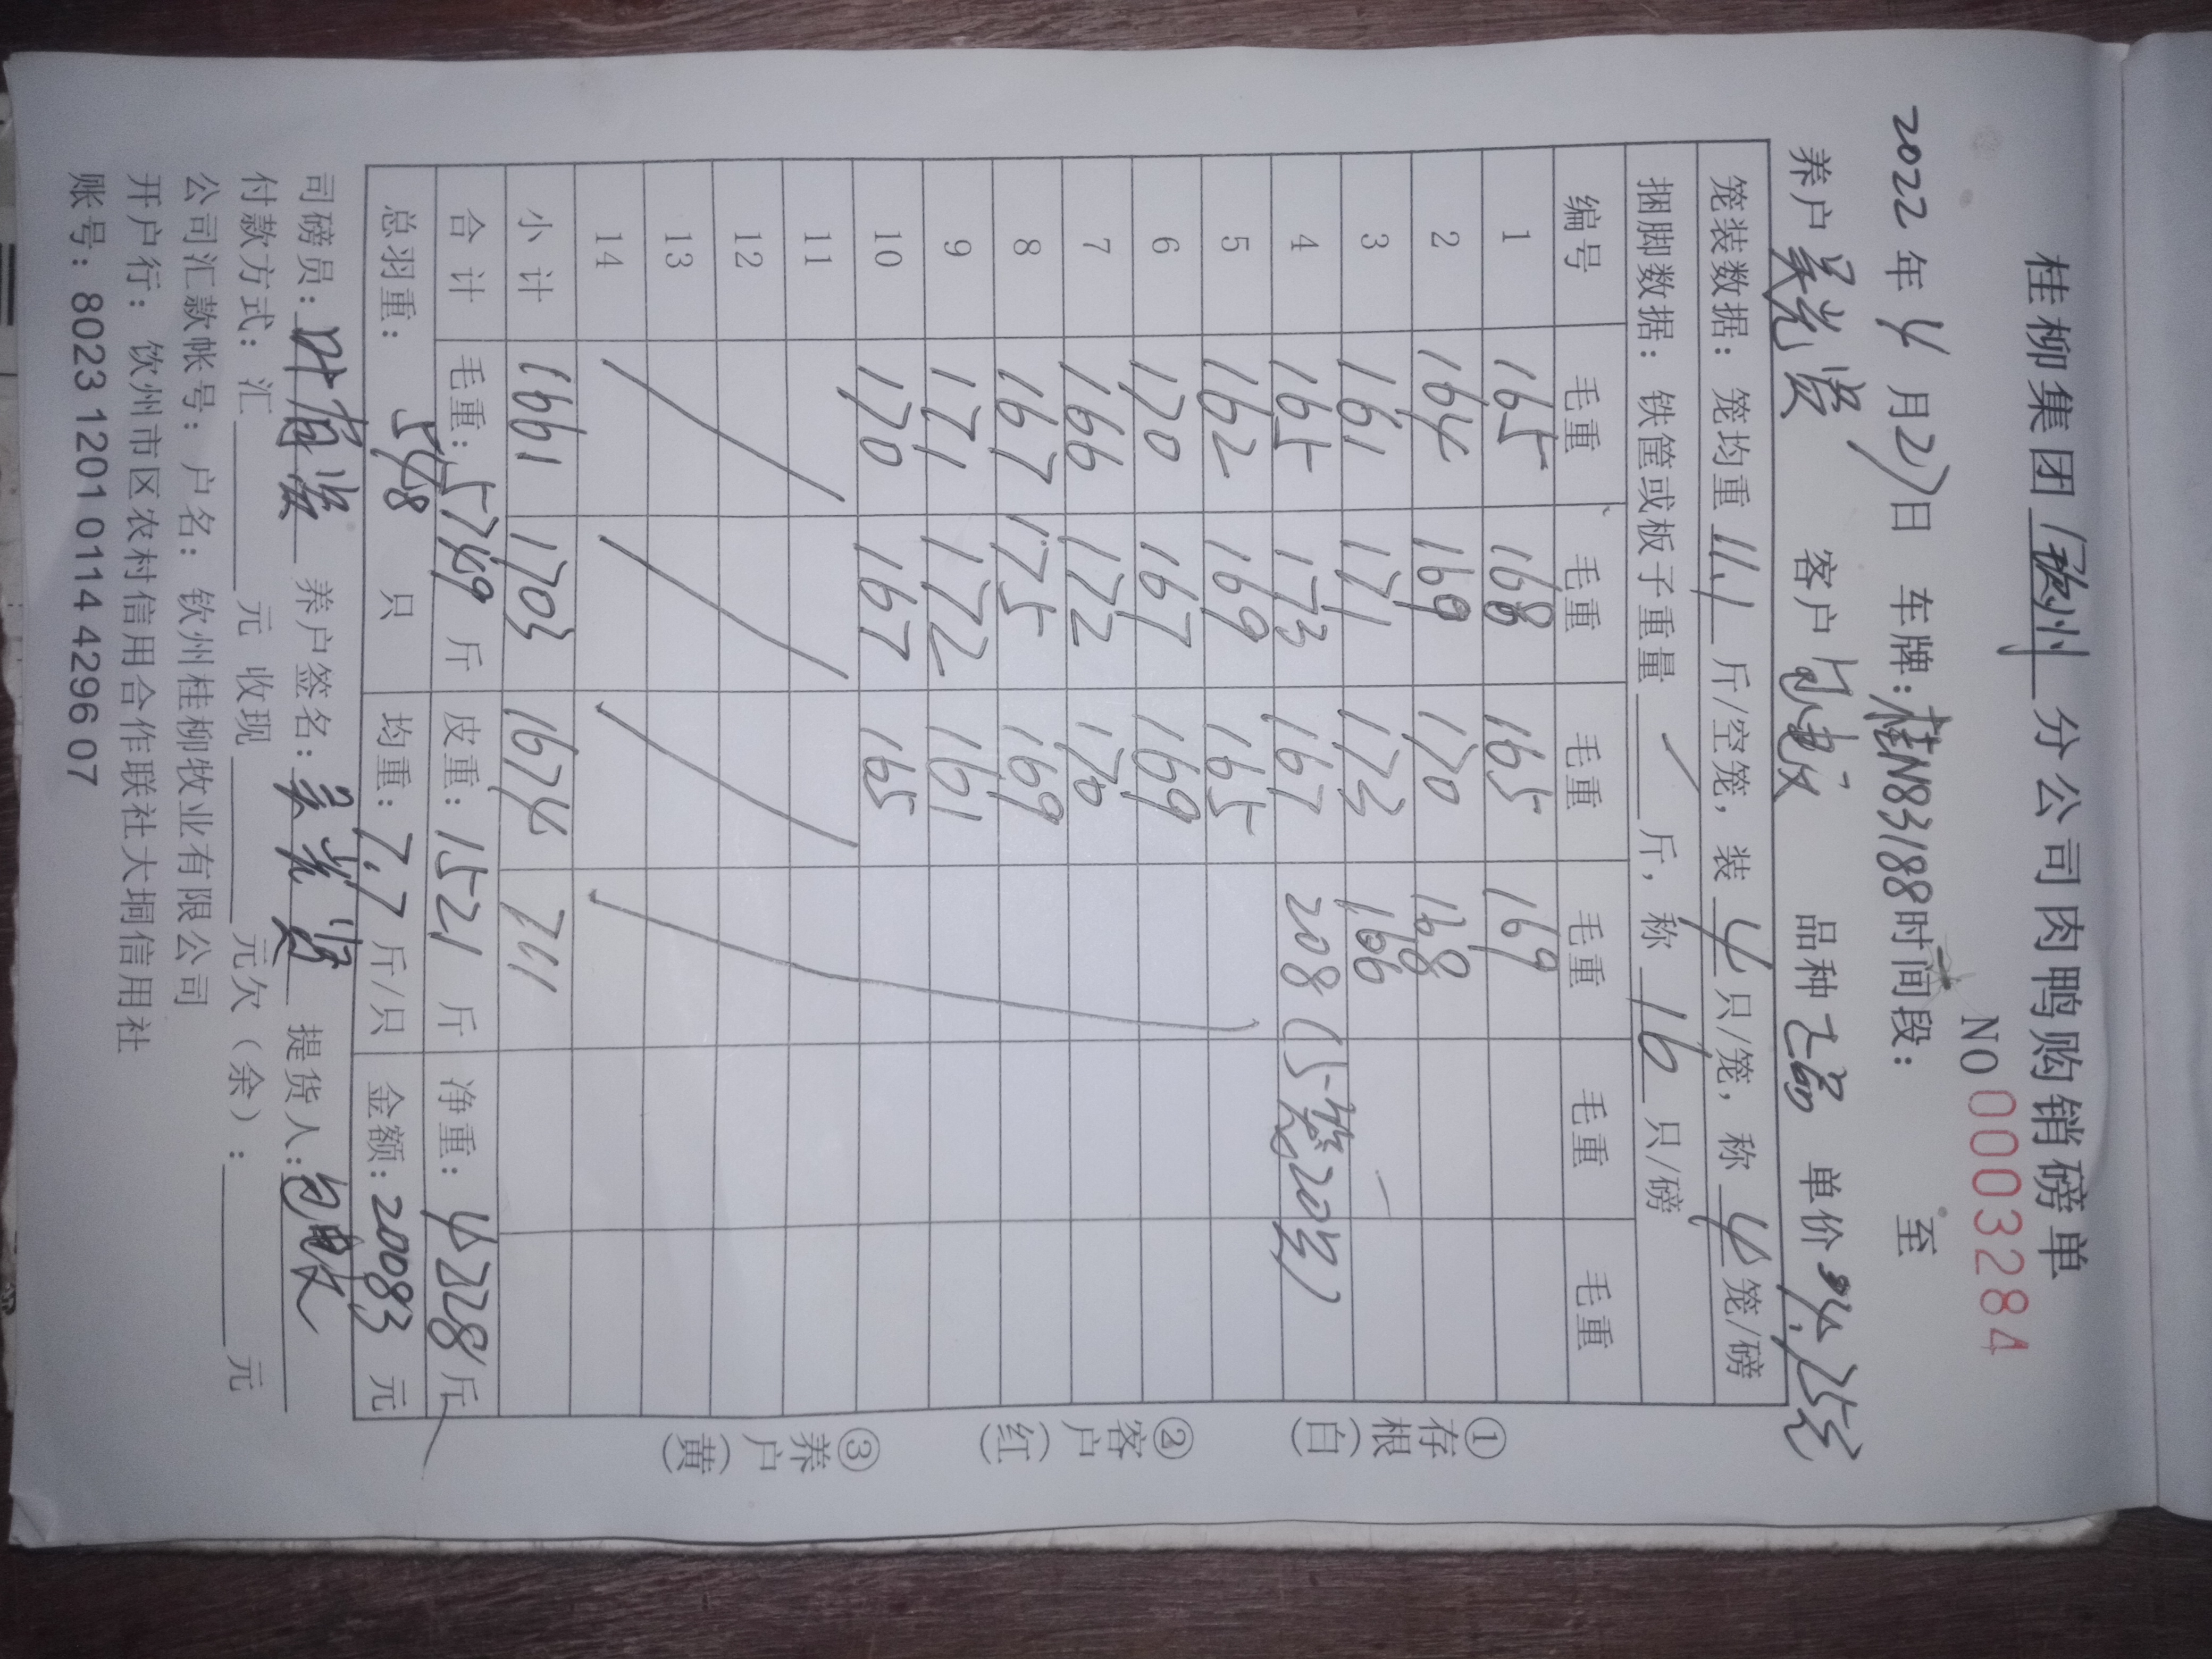 桂柳集团 钦州 分公司肉鸭购销磅单
NO 0003284
2022年4月27日 车牌:桂N83188时间段: 至
养户 客户 品种 单价 4.75元
笼装数据: 笼均重 11.1 斤/空笼, 装 4 只/笼, 称 4 笼/磅
捆脚数据: 铁筐或板子重量 / 斤, 称 16 只/磅
编号 毛重 毛重 毛重 毛重 毛重 毛重
1 165 168 165 169
2 164 169 170 168
3 161 171 173 166
4 165 173 167 208 (5笼20只)
5 162 169 165
6 170 167 169
7 166 172 170
8 167 175 169
9 171 172 161
10 170 167 165
11
12
13
14
小计 1661 1703 1674 711
合计 毛重: 5749 斤 皮重: 1521 斤 净重: 4228 斤
总羽重: 548 只 均重: 7.7 斤/只 金额: 20083 元
司磅员: 养户签名: 提货人:
付款方式: 汇 元 收现 元欠(余): 元
公司汇款帐号: 户名: 钦州桂柳牧业有限公司
开户行: 钦州市区农村信用合作联社大垌信用社
账号: 8023 1201 0114 4296 07
①存根(白) ②客户(红) ③养户(黄)